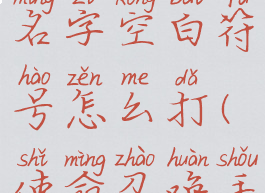 míng zì kòng bái fú
名字空白符
hào zěn me dǎ
号怎么打(
shǐ mìng zhào huàn shǒu
使命召唤手